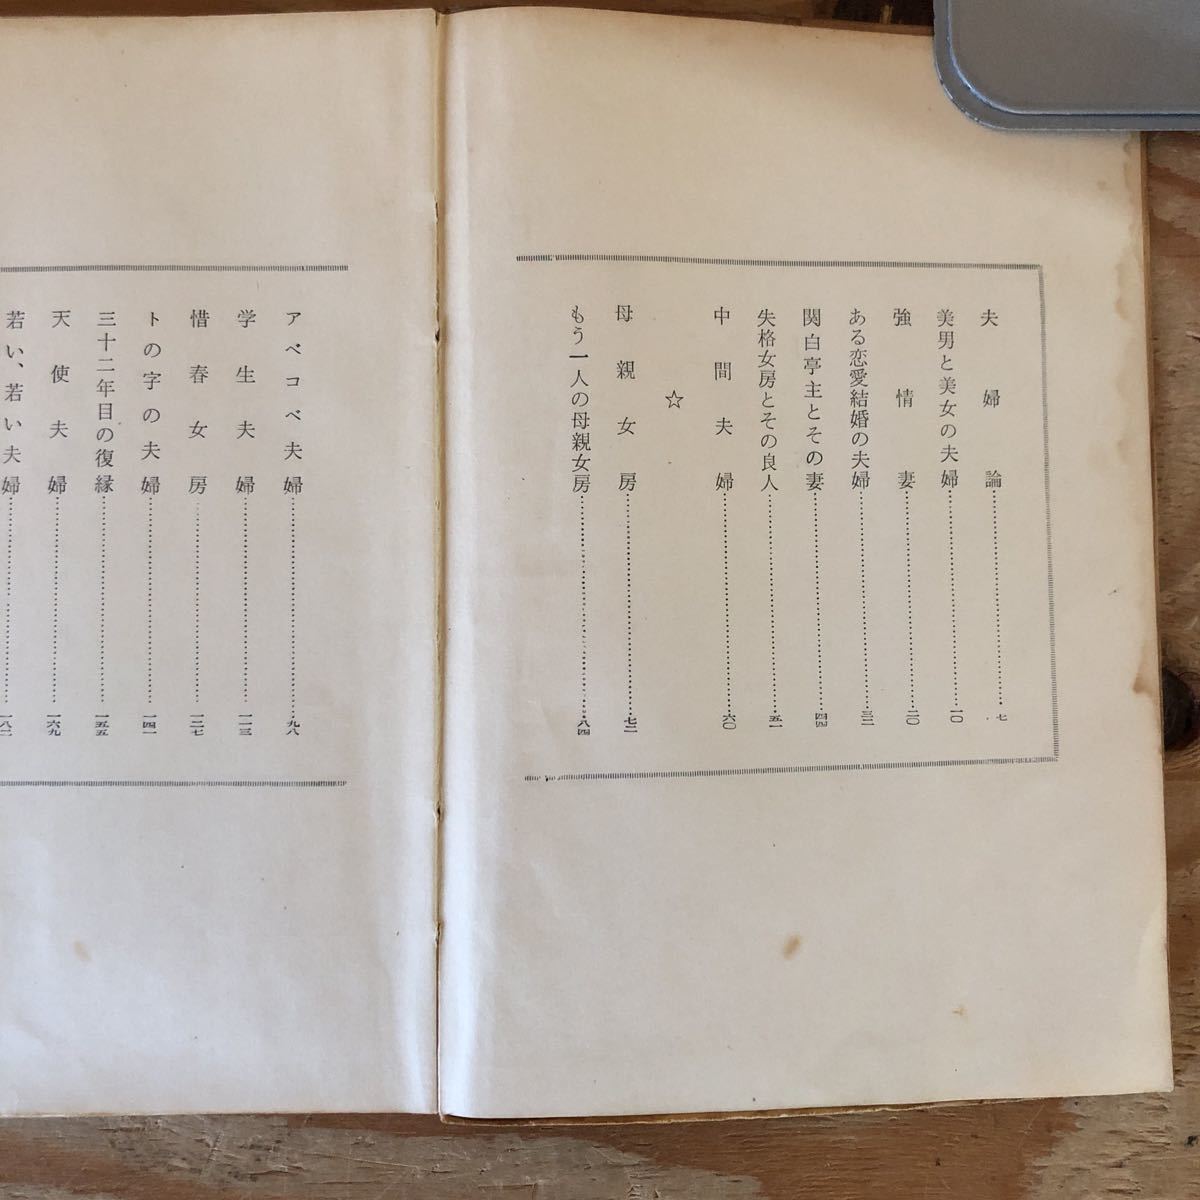 夫婦論……七
美男と美女の夫婦……一〇
強情妻……二〇
ある恋愛結婚の夫婦……三二
関白亭主とその妻……四四
失格女房とその良人……五一
中間夫婦……六〇
☆
母親女房……七二
もう一人の母親女房……八四
アベコベ夫婦……九八
学生夫婦……一一三
惜春女房……一二七
トの字の夫婦……一四一
三十二年目の復縁……一五五
天使夫婦……一六九
若い、若い夫婦……一八二